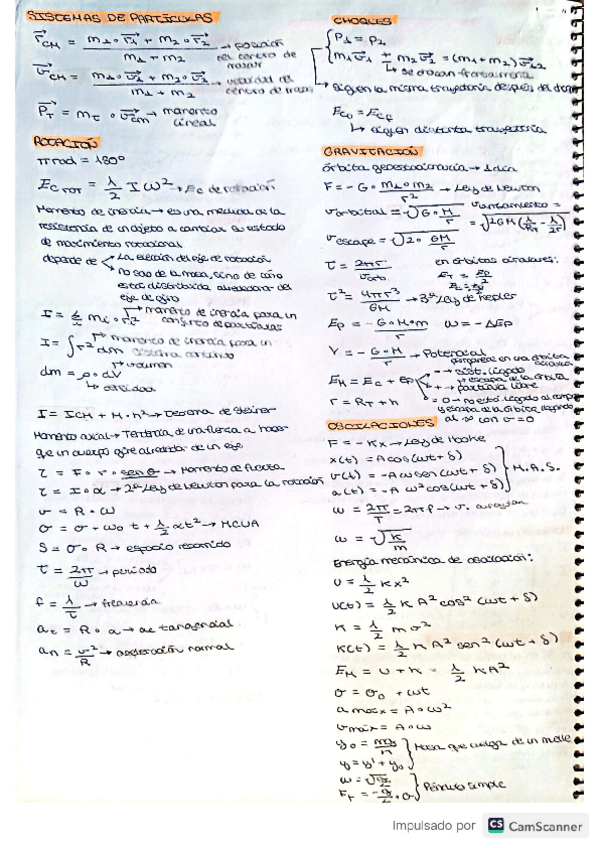 SISTEMAS DE PARTÍCULAS
r⃗CM = m1∘r⃗1 + m2∘r⃗2 / m1 + m2 → posición del centro de masas
v⃗CM = m1∘v⃗1 + m2∘v⃗2 / m1 + m2 → velocidad del centro de masas
P⃗T = mT ∘ v⃗cm → momento lineal
ROTACIÓN
π rad = 180º
Ec rot = 1/2 I ω² → Ec de rotación
Momento de inercia → es una medida de la
resistencia de un objeto a cambiar su estado
de movimiento rotacional
depende de
La elección del eje de rotación
no solo de la masa, sino de cómo
está distribuida alrededor del
eje de giro
I = Σ mi ∘ r² → momento de inercia para un conjunto de partículas
I = ∫ r² dm → momento de inercia para un
dm = ρ ∘ dV → volumen
↳ densidad
I = ICM + M ∘ h² → Teorema de Steiner
Momento axial → Tendencia de una fuerza a hacer
que un cuerpo gire alrededor de un eje
τ = F ∘ r ∘ sen θ → Momento de fuerza
τ = I ∘ α → 2ª Ley de Newton para la rotación
v = R ∘ ω
σ = σ + ω0 t + 1/2 αt² → MCUA
S = σ ∘ R → espacio recorrido
T = 2π/ω → periodo
f = 1/T → frecuencia
at = R ∘ α → ac tangencial
an = v²/R → aceleración normal
CHOQUES
P1 = P2
m1v⃗1 + m2v⃗2 = (m1 + m2)v⃗12
↳ se chocan frontalmente
siguen la misma trayectoria después del
Ec0 = Ecf
↳ siguen distinta trayectoria
GRAVITACIÓN
órbita geoestacionaria → 1 día
F = -G ∘ m1∘m2 / r² → Ley de Newton
vorbital = √G∘M/r
vlanzamiento = √2GM(1/RT - 1/2r)
vescape = √2∘GM/r
T = 2πr/vorb
en órbitas circulares:
T² = 4π²r³/GM → 3ª Ley de Kepler
Ep = -G∘M∘m/r W = -ΔEp
V = -G∘M/r → Potencial
EM = Ec + Ep
- → sist. ligado
+ → partícula libre
r = RT + h
al ∞ con v=0
OSCILACIONES
F = -Kx → Ley de Hooke
x(t) = A cos(ωt + δ)
v(t) = -Aω sen(ωt + δ)
a(t) = -A ω² cos(ωt + δ)
M.A.S.
ω = 2π/T = 2πf → v. angular
ω = √K/m
Energía mecánica de oscilación:
U = 1/2 Kx²
U(t) = 1/2 K A² cos²(ωt + δ)
K = 1/2 mv²
K(t) = 1/2 K A² sen²(ωt + δ)
EM = U + K = 1/2 KA²
σ = σ0 + ωt
a max = A∘ω²
vmáx = A∘ω
y0 = mg/K
y = y' + y0
Masa que cuelga de un muelle
Péndulo simple
Impulsado por CS CamScanner